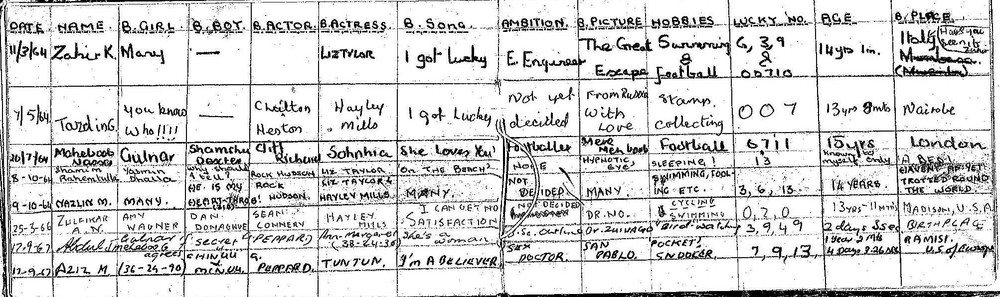 DATE NAME B.GIRL B.BOY B.ACTOR B.ACTRESS B.SONG. AMBITION. B.PICTURE HOBBIES LUCKY NO. AGE B.PLACE
11/3/64 Zahir K. Mary — LIZ TYLOR I got lucky E. Engineer The Great Escape Swimming & Football 6, 3, 9 & 00710 14 yrs 1m. Italy
7/5/64 Tajdin G. you know who!!!! — Charlton Heston Hayley Mills I got Lucky Not yet decided From Russia With Love Stamp collecting 007 13 yrs 8 mts Nairobi
20/7/64 Maheboob Gulnar Shamshu Dexter Cliff Richard Sohphia She Loves You Footballer Football 6711 15 yrs London
8-10-64 Shamim Rahemtulla Yasmin Why should I tell ROCK HUDSON LIZ TAYLOR "ON THE BEACH" NOT HYPNOTIC EYE SLEEPING! 13 Known to myself only A BED!
9-10-64 NAZLIN M. MANY. HE IS MY HEART-THROB ROCK HUDSON. LIZ TAYLOR & HAYLEY MILLS MANY. NOT DECIDED MANY SWIMMING, FOOLING ETC. 3, 6, 13. 14 YEARS HAVENT AS YET TROTTED ROUND THE WORLD.
25-3-66 ZULFIKAR A.N. AMY WAGNER DAN. DONAGHUE SEAN. CONNERY HAYLEY MILLS I CAN GET NO SATISFACTION NO DECIDED DR. NO. CYCLING & SWIMMING 0, 2, 0 13 yrs-11 mts MADISON, U.S.A
17-9-67 Abdul Gulnar agrees secret G (PEPPARD) Ann-Margaret (38-24-36) She's a woman Dr. Zhivago Bird-watching 3, 9, 49 2 days 5 sec BIRTHPLACE
12-9-67 AZIZ M. (36-24-90) MINUU. & MINUU. G. PEPPARD. TUNTUN. I'm A BELIEVER SEX DOCTOR. SAN PABLO. POCKET! SNOOKER. 7, 9, 13, 1 Year 2 Mts RAMISI. U.S. of Europe